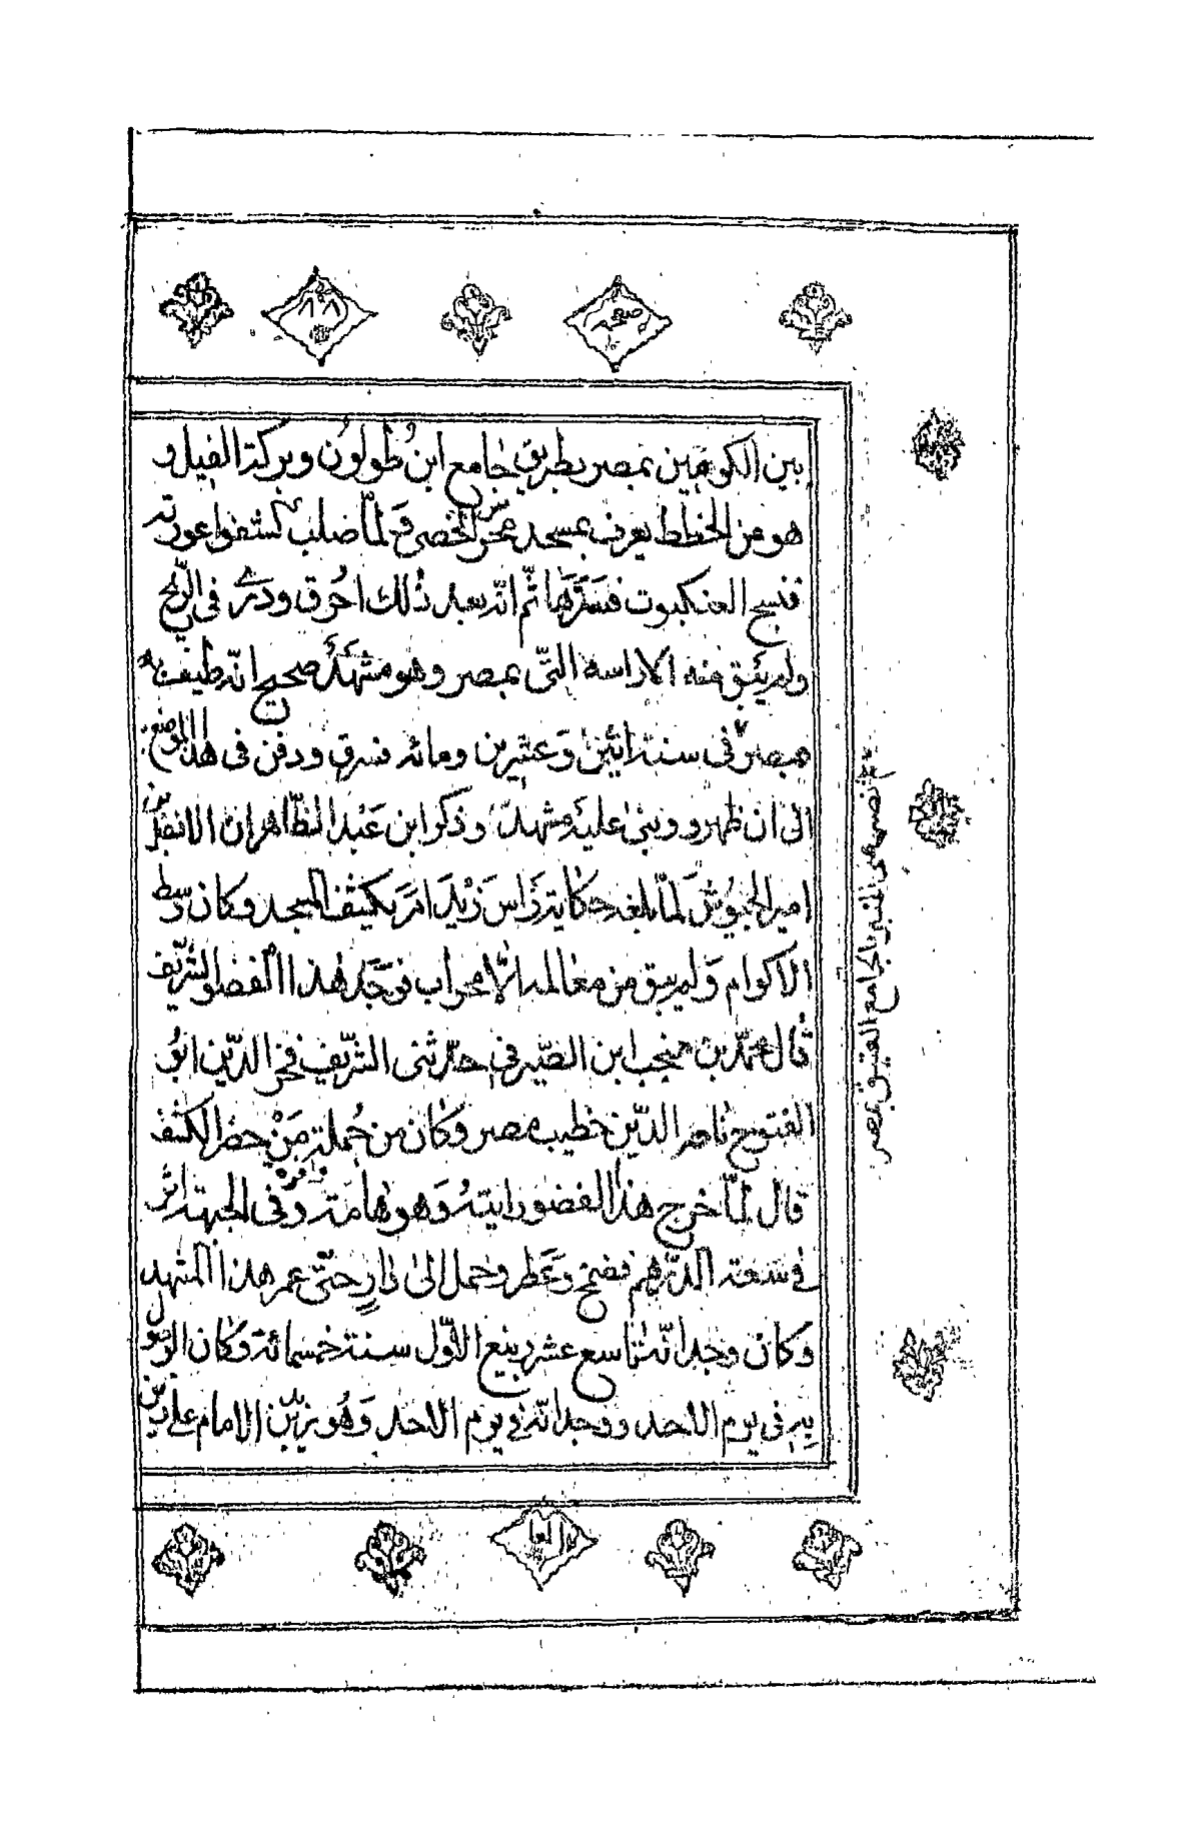 صفحه
٨٨
بين الكومين بمصر بطريق جامع ابن طولون وبركة الفيل و
هو من الخطط يعرف بمسجد محرس الخصى وَلمّا صلب كشفوا عورته
فنسج العنكبوت فسَتَرَهَا ثُم انّه بعد ذٰلك احُرق وذرى فى الرّيح
ولم يَبق منه الا راسه الّتى بمصر وهو مشهَدٌ صحيح انّه طيف بها
بمصر فى سنة اثنين وَعشرين ومائه فسرق ودفن فى هذا الموضع
الى ان ظهر و وبنى عليه مشهد وذكر ابن عَبْد الظّاهر ان الافضل بن
امير الجيوُش لَمّا بلغه حكاية رَاس زَيْد اَمَرَ بكشف المسجد وكان وسط
الاكوام وَلم يبق من معالمه الاّ محراب فوَجَد هٰذا العضو الشّريف
قال محمّد بن منجب ابن الصّيرفى حدّثنى الشّريف فخر الدّين ابُو
الفتوح ناصر الدّين خطيب مصر وكان من جُملة مَنْ حضر الكشف
قال لمّا خرج هذا العضو رايتهُ وَهو هامة وفى الجبهة اثر
فى سَعة الدّرهم فضمخ وعَطر وحمل الى دارٍ حتّى عمر هذا المشهد
وكان وجدانّه تاسع عشر ربيع الاوّل سنة خمسمائة وكان الوصول
بِه فى يوم الاحد ووجدانّه فى يوم الاحد وَهُو زين الامام على بن
المنبر بالجامع العتيق بمصر